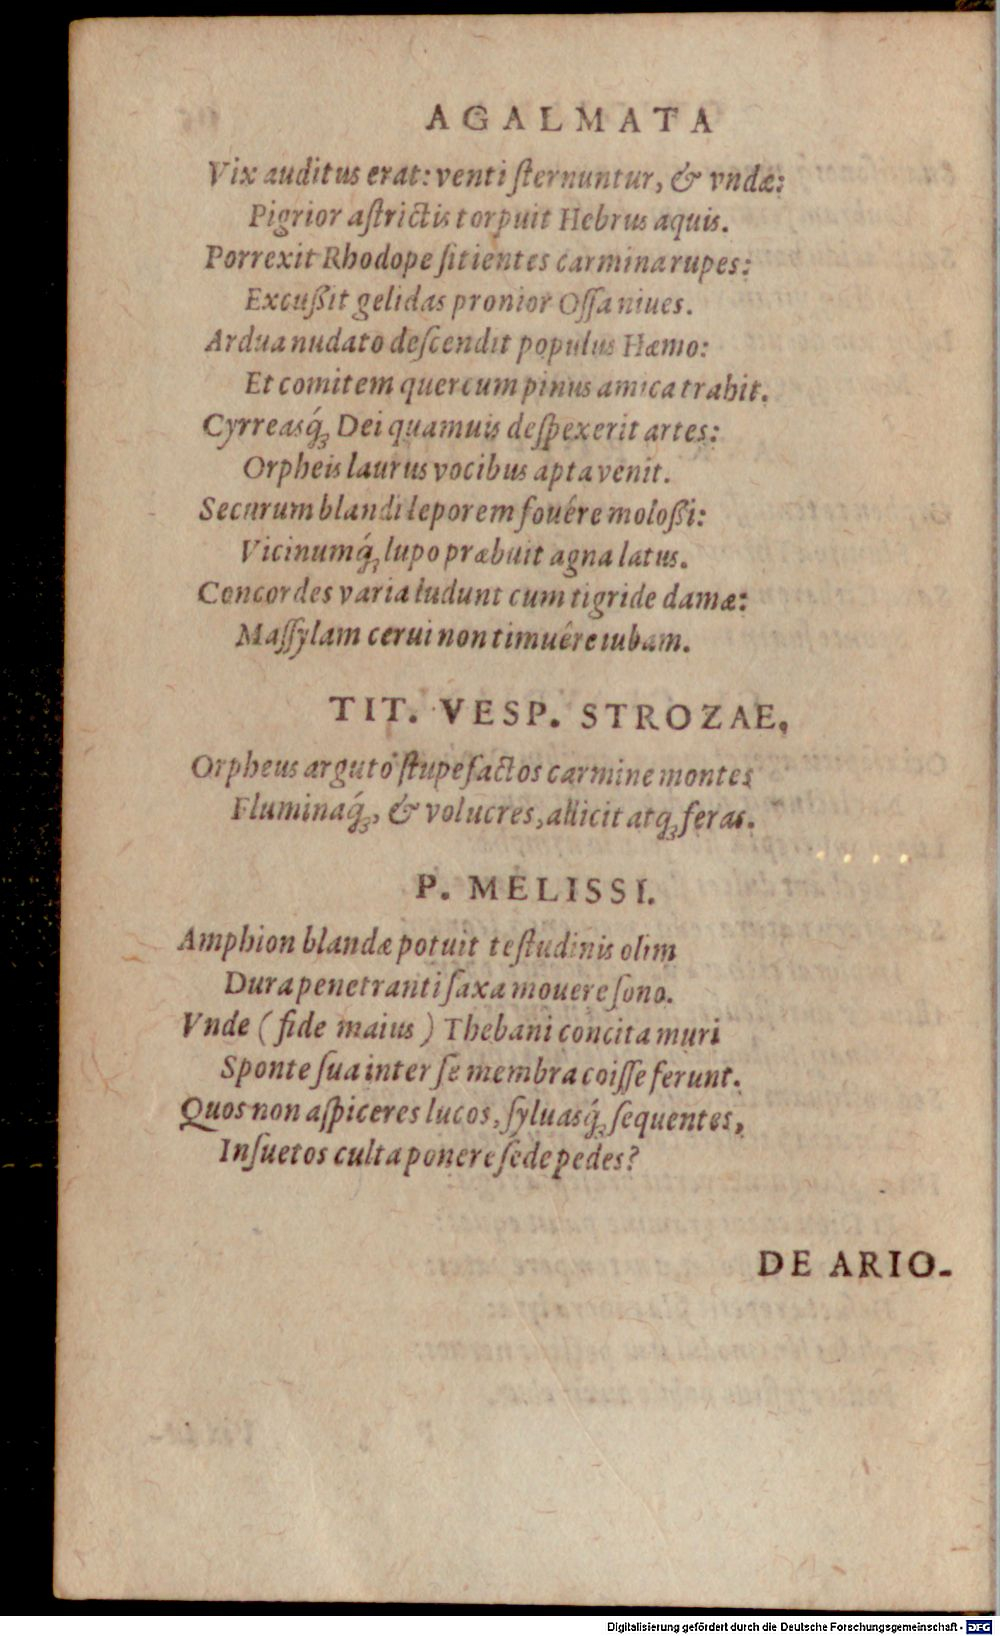 AGALMATA
Vix auditus erat: venti ſternuntur, & vndæ:
Pigrior aſtrictis torpuit Hebrus aquis.
Porrexit Rhodope ſitientes carmina rupes:
Excuſſit gelidas pronior Oſſa niues.
Ardua nudato deſcendit populus Hæmo:
Et comitem quercum pinus amica trahit.
Cyrreasq́ꝫ Dei quamuis deſpexerit artes:
Orpheis laurus vocibus apta venit.
Securum blandi leporem fouêre moloſſi:
Vicinumq́ꝫ lupo præbuit agna latus.
Concordes varia ludunt cum tigride damæ:
Maſſylam cerui non timuêre iubam.
TIT. VESP. STROZAE.
Orpheus arguto ſtupefactos carmine montes
Fluminaq́ꝫ, & volucres, allicit atqꝫ feras.
P. MELISSI.
Amphion blandæ potuit teſtudinis olim
Dura penetranti ſaxa mouere ſono.
Vnde (fide maius) Thebani concita muri
Sponte ſua inter ſe membra coiſſe ferunt.
Quos non aſpiceres lucos, ſyluasq́ꝫ ſequentes,
Inſuetos culta ponere ſede pedes?
DE ARIO-
Digitalisierung gefördert durch die Deutsche Forschungsgemeinschaft - DFG